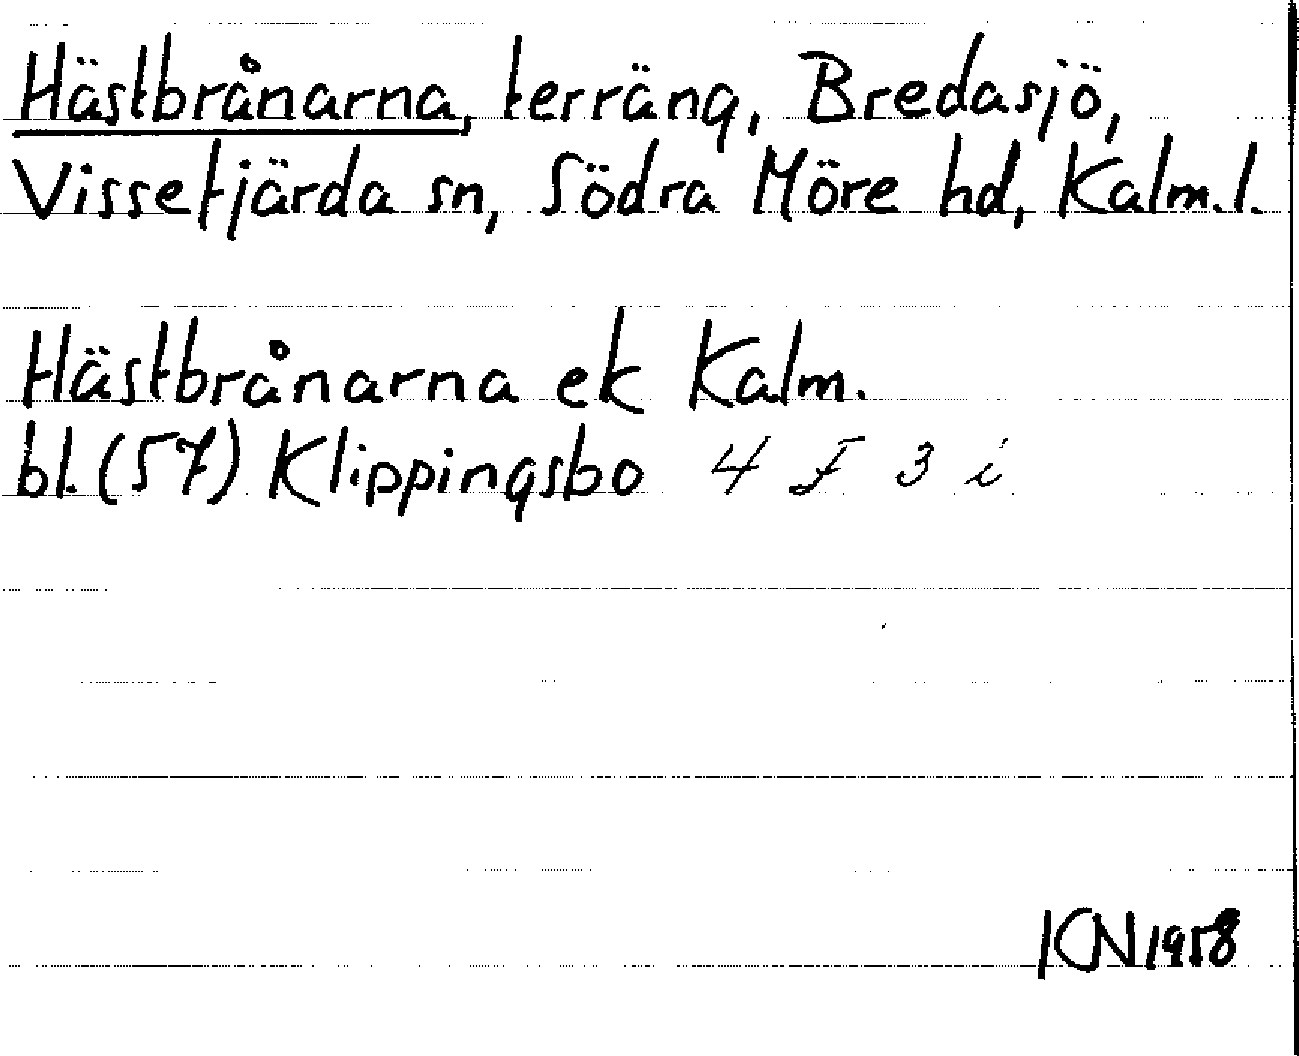 Hästbrånarna, terräng, Bredasjö,
Vissefjärda sn, Södra Möre hd, Kalm.l.
Hästbrånarna ek Kalm.
bl. (57) Klippingsbo 4 F 3 i
KN 1958